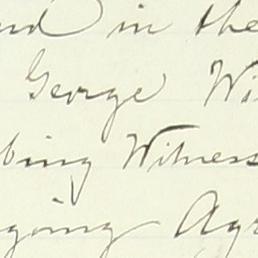 nd in the
George Wi
bing Witness
going Agr